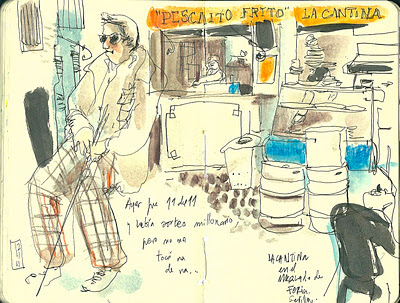 "PESCAITO FRITO" LA CANTINA
Ayer fue 11 del 11
y había sorteo millonario,
pero no me
tocó na
de na...
LA CANTINA
en el
Mercado de
FERIA.
Sevilla